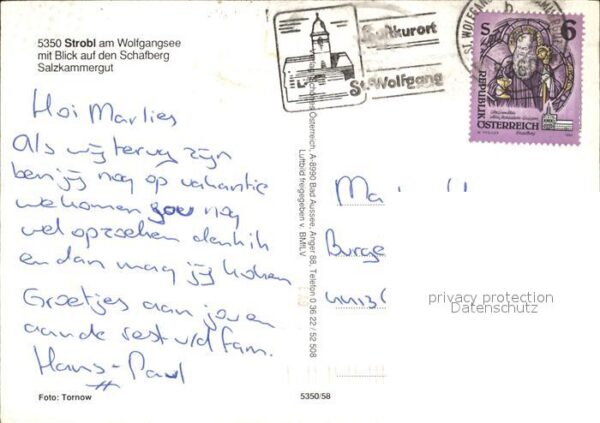 5350 Strobl am Wolfgangsee
mit Blick auf den Schafberg
Salzkammergut
Hoi Marlies
Als wij terug zijn
ben jij nog op vakantie
we komen jou nog
wel opzoeken denk ik
en dan mag jij koken
Groetjes aan jou en
aan de rest v/d fam.
Hans-Paul
Foto: Tornow
Österreich, A-8990 Bad Aussee, Anger 88, Telefon 0 36 22 / 52 508
Luftbild freigegeben v. BMLV
5350/58
Luftkurort
St. Wolfgang
ST. WOLFGANG
S 6
REPUBLIK
ÖSTERREICH
Ma
Burge
privacy protection
Datenschutz